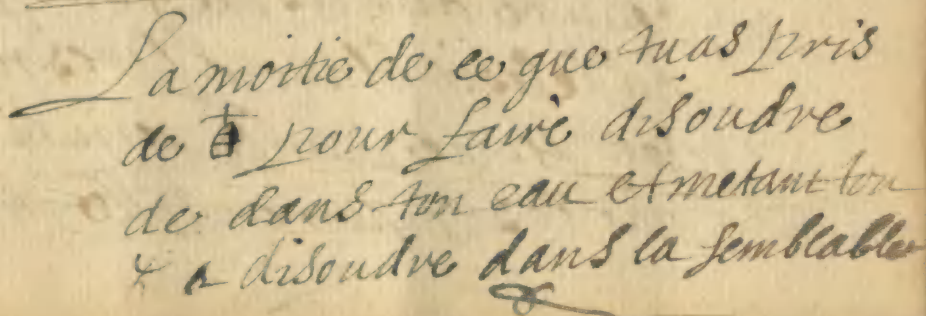 La moitie de ce que tu as pris
de pour faire disoudre
de dans ton eau et metant ton
a disoudre dans la semblable